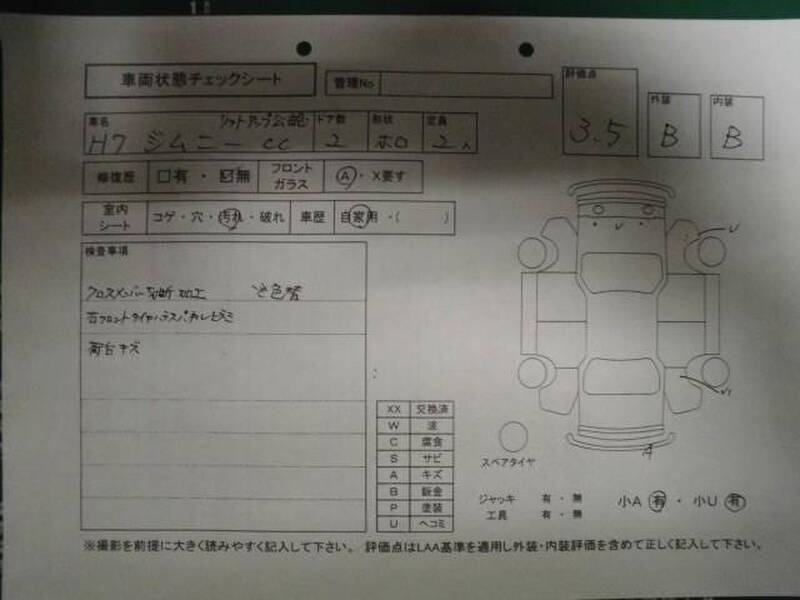 車両状態チェックシート
管理No
評価点 3.5
外装 B
内装 B
車名 H7 ジムニー CC リフトアップ公認
ドア数 2
形状 ホロ
定員 2人
修復歴 □有・☑無 フロントガラス A・X要す
室内シート コゲ・穴・汚れ・破れ 車歴 自家用・( )
検査事項
クロスメンバー切断加工 色替
右フロントタイヤハウス
荷台キズ
XX 交換済
W 波
C 腐食
S サビ
A キズ
B 鈑金
P 塗装
U ヘコミ
U
U
A
スペアタイヤ
ジャッキ 有・無
工具 有・無
小A 有・小U 有
※撮影を前提に大きく読みやすく記入して下さい。 評価点はLAA基準を適用し外装・内装評価を含めて正しく記入して下さい。